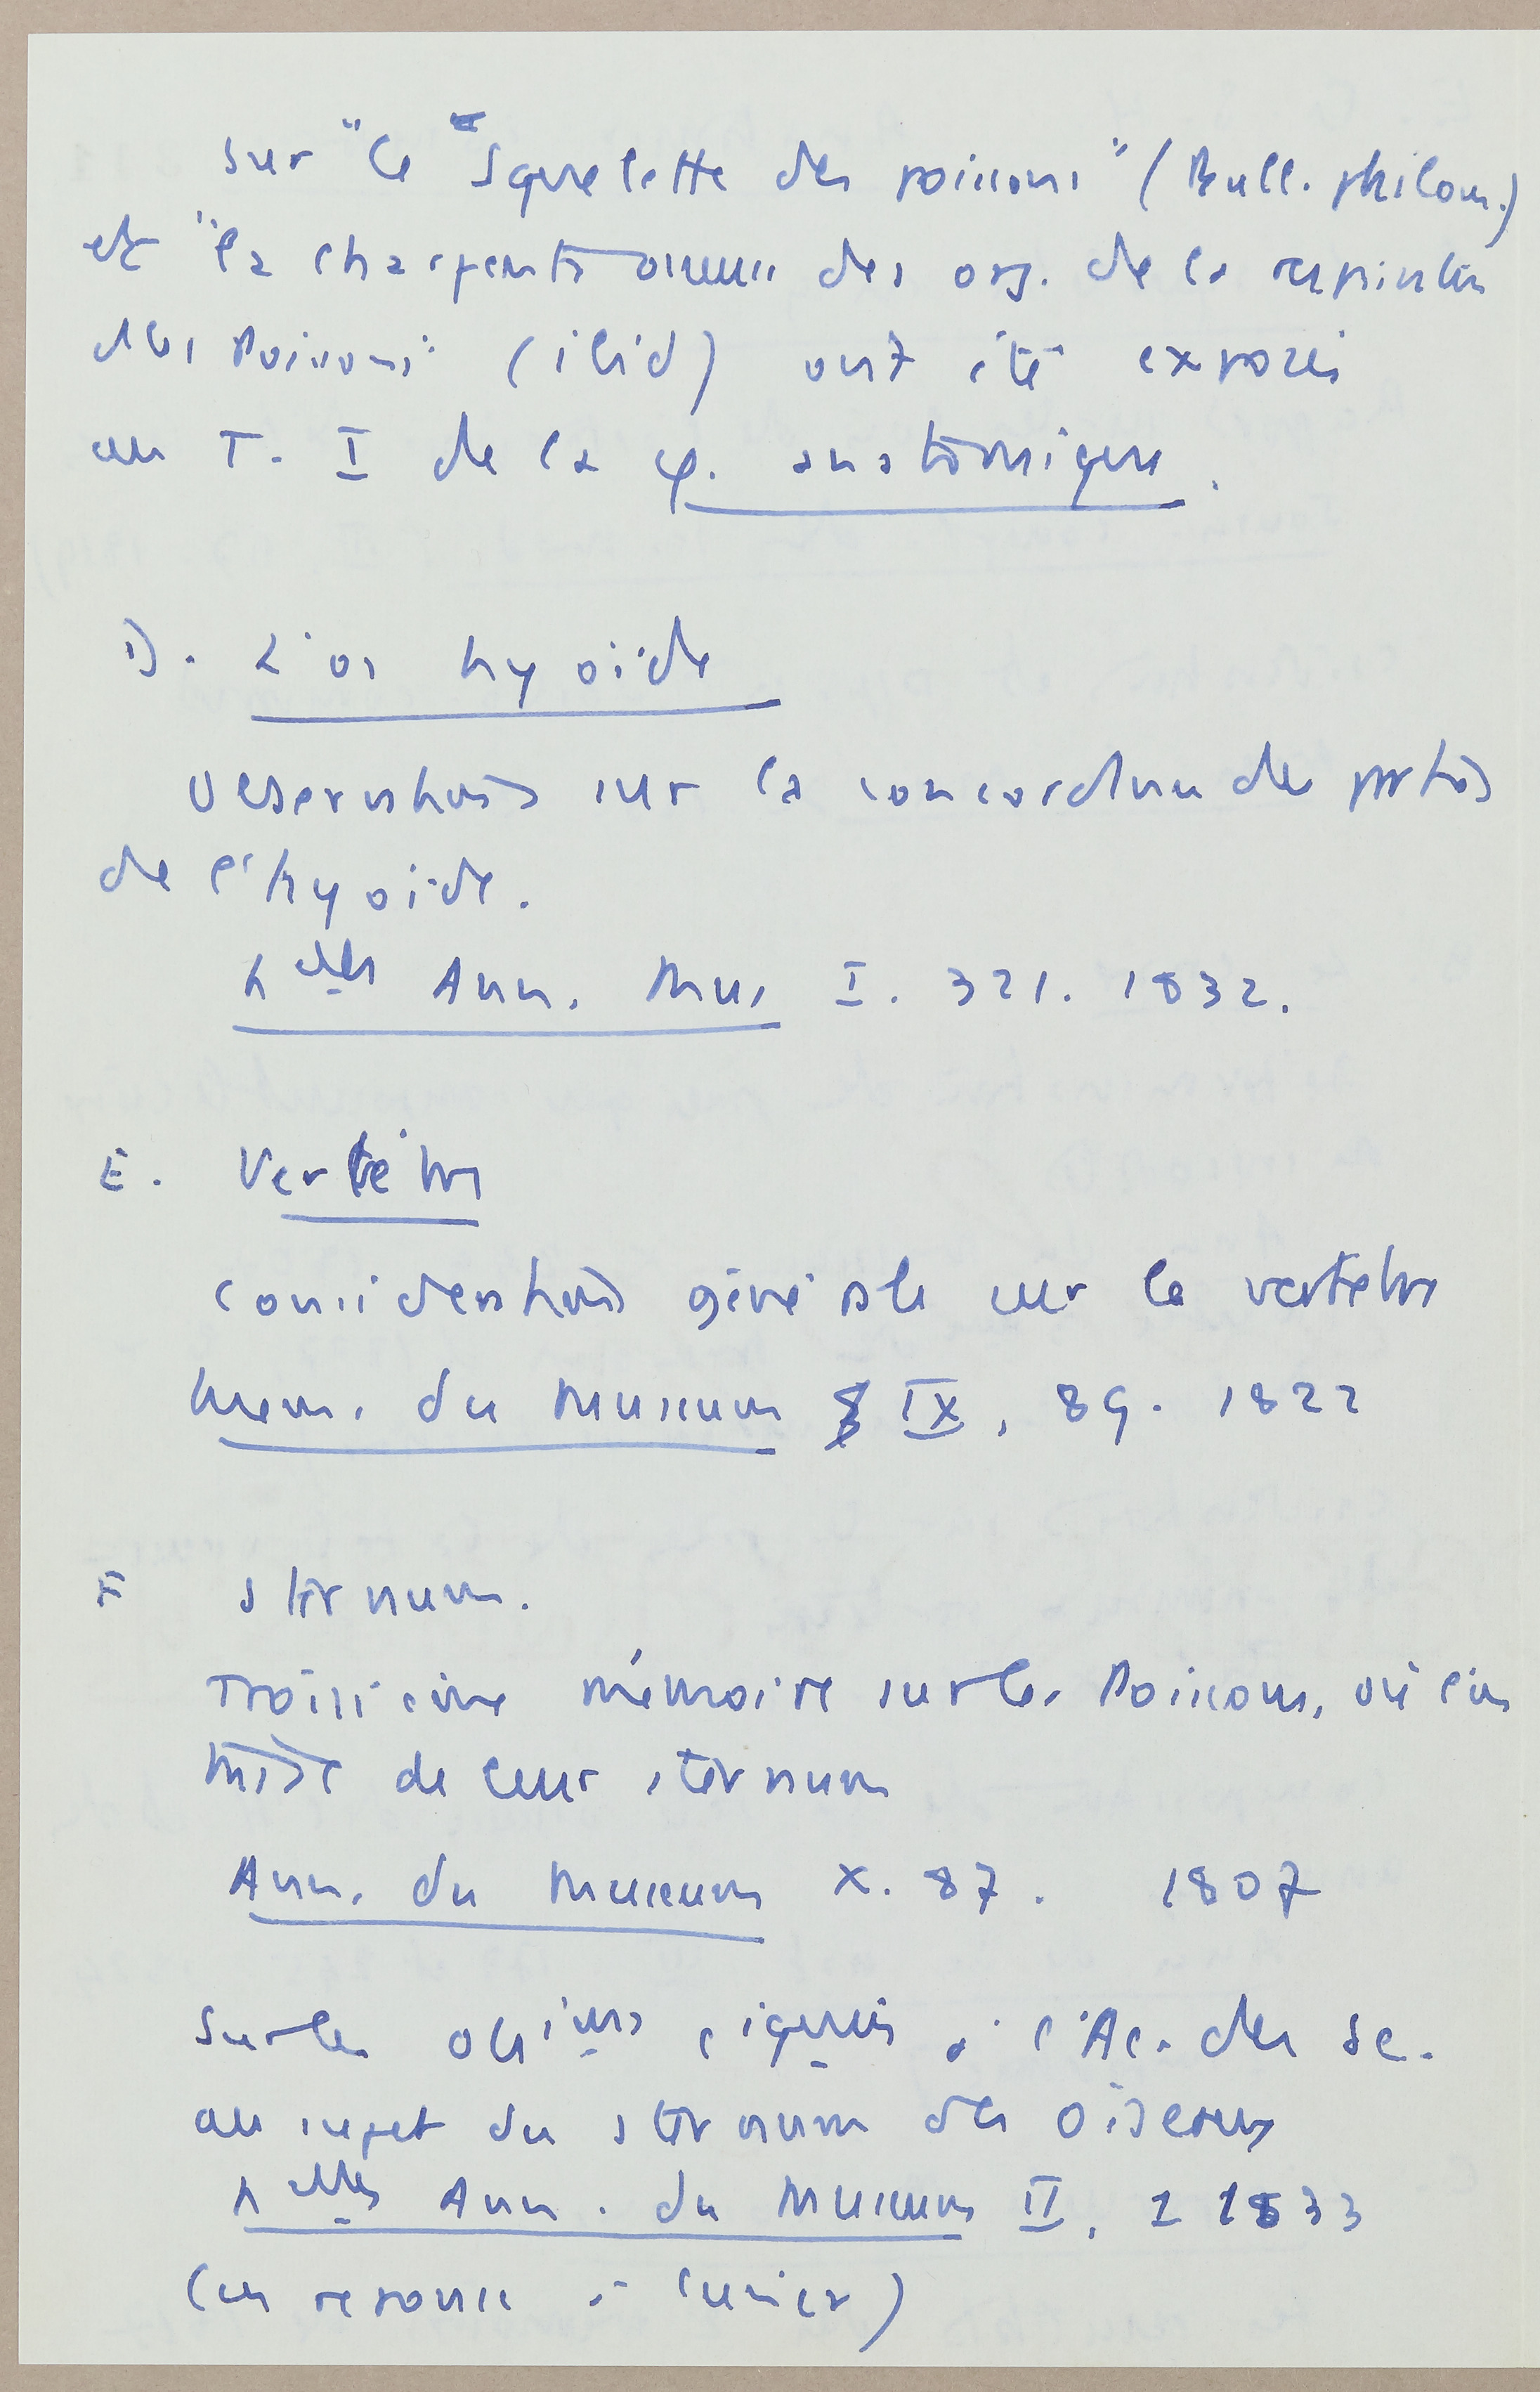 sur "le squelette des poissons" (Bull. philom.)
et "la charpente osseuse des org. de la respiration
des Poissons" (ibid) ont été exposés
au T. I de la φ. anatomique.
D. L'os hyoïde
Observations sur la concordance des parties
de l'hyoïde.
Nelles Ann. Mus I. 321. 1832.
E. Vertèbres
Considérations générales sur la vertèbre
Mem. du Museum IX, 89. 1822
F Sternum.
Troisième mémoire sur les Poissons, où l'on
traite de leur sternum
Ann. du Museum X. 87. 1807
Sur les objets à l'Ac. des Sc.
au sujet du sternum des Oiseaux
Nelles Ann. du Museum II, 1 1833
(en réponse à Cuvier)